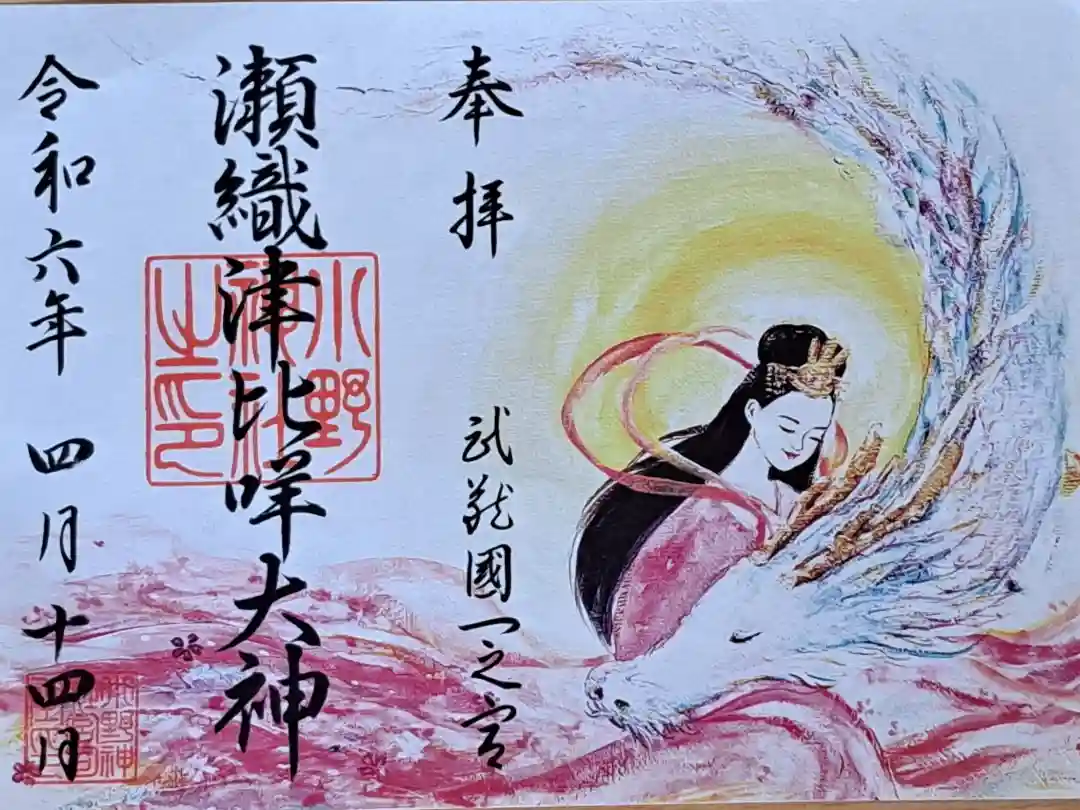 奉拝
武蔵國一之宮
瀬織津比咩大神
小野神社之印
令和六年 四月十四日